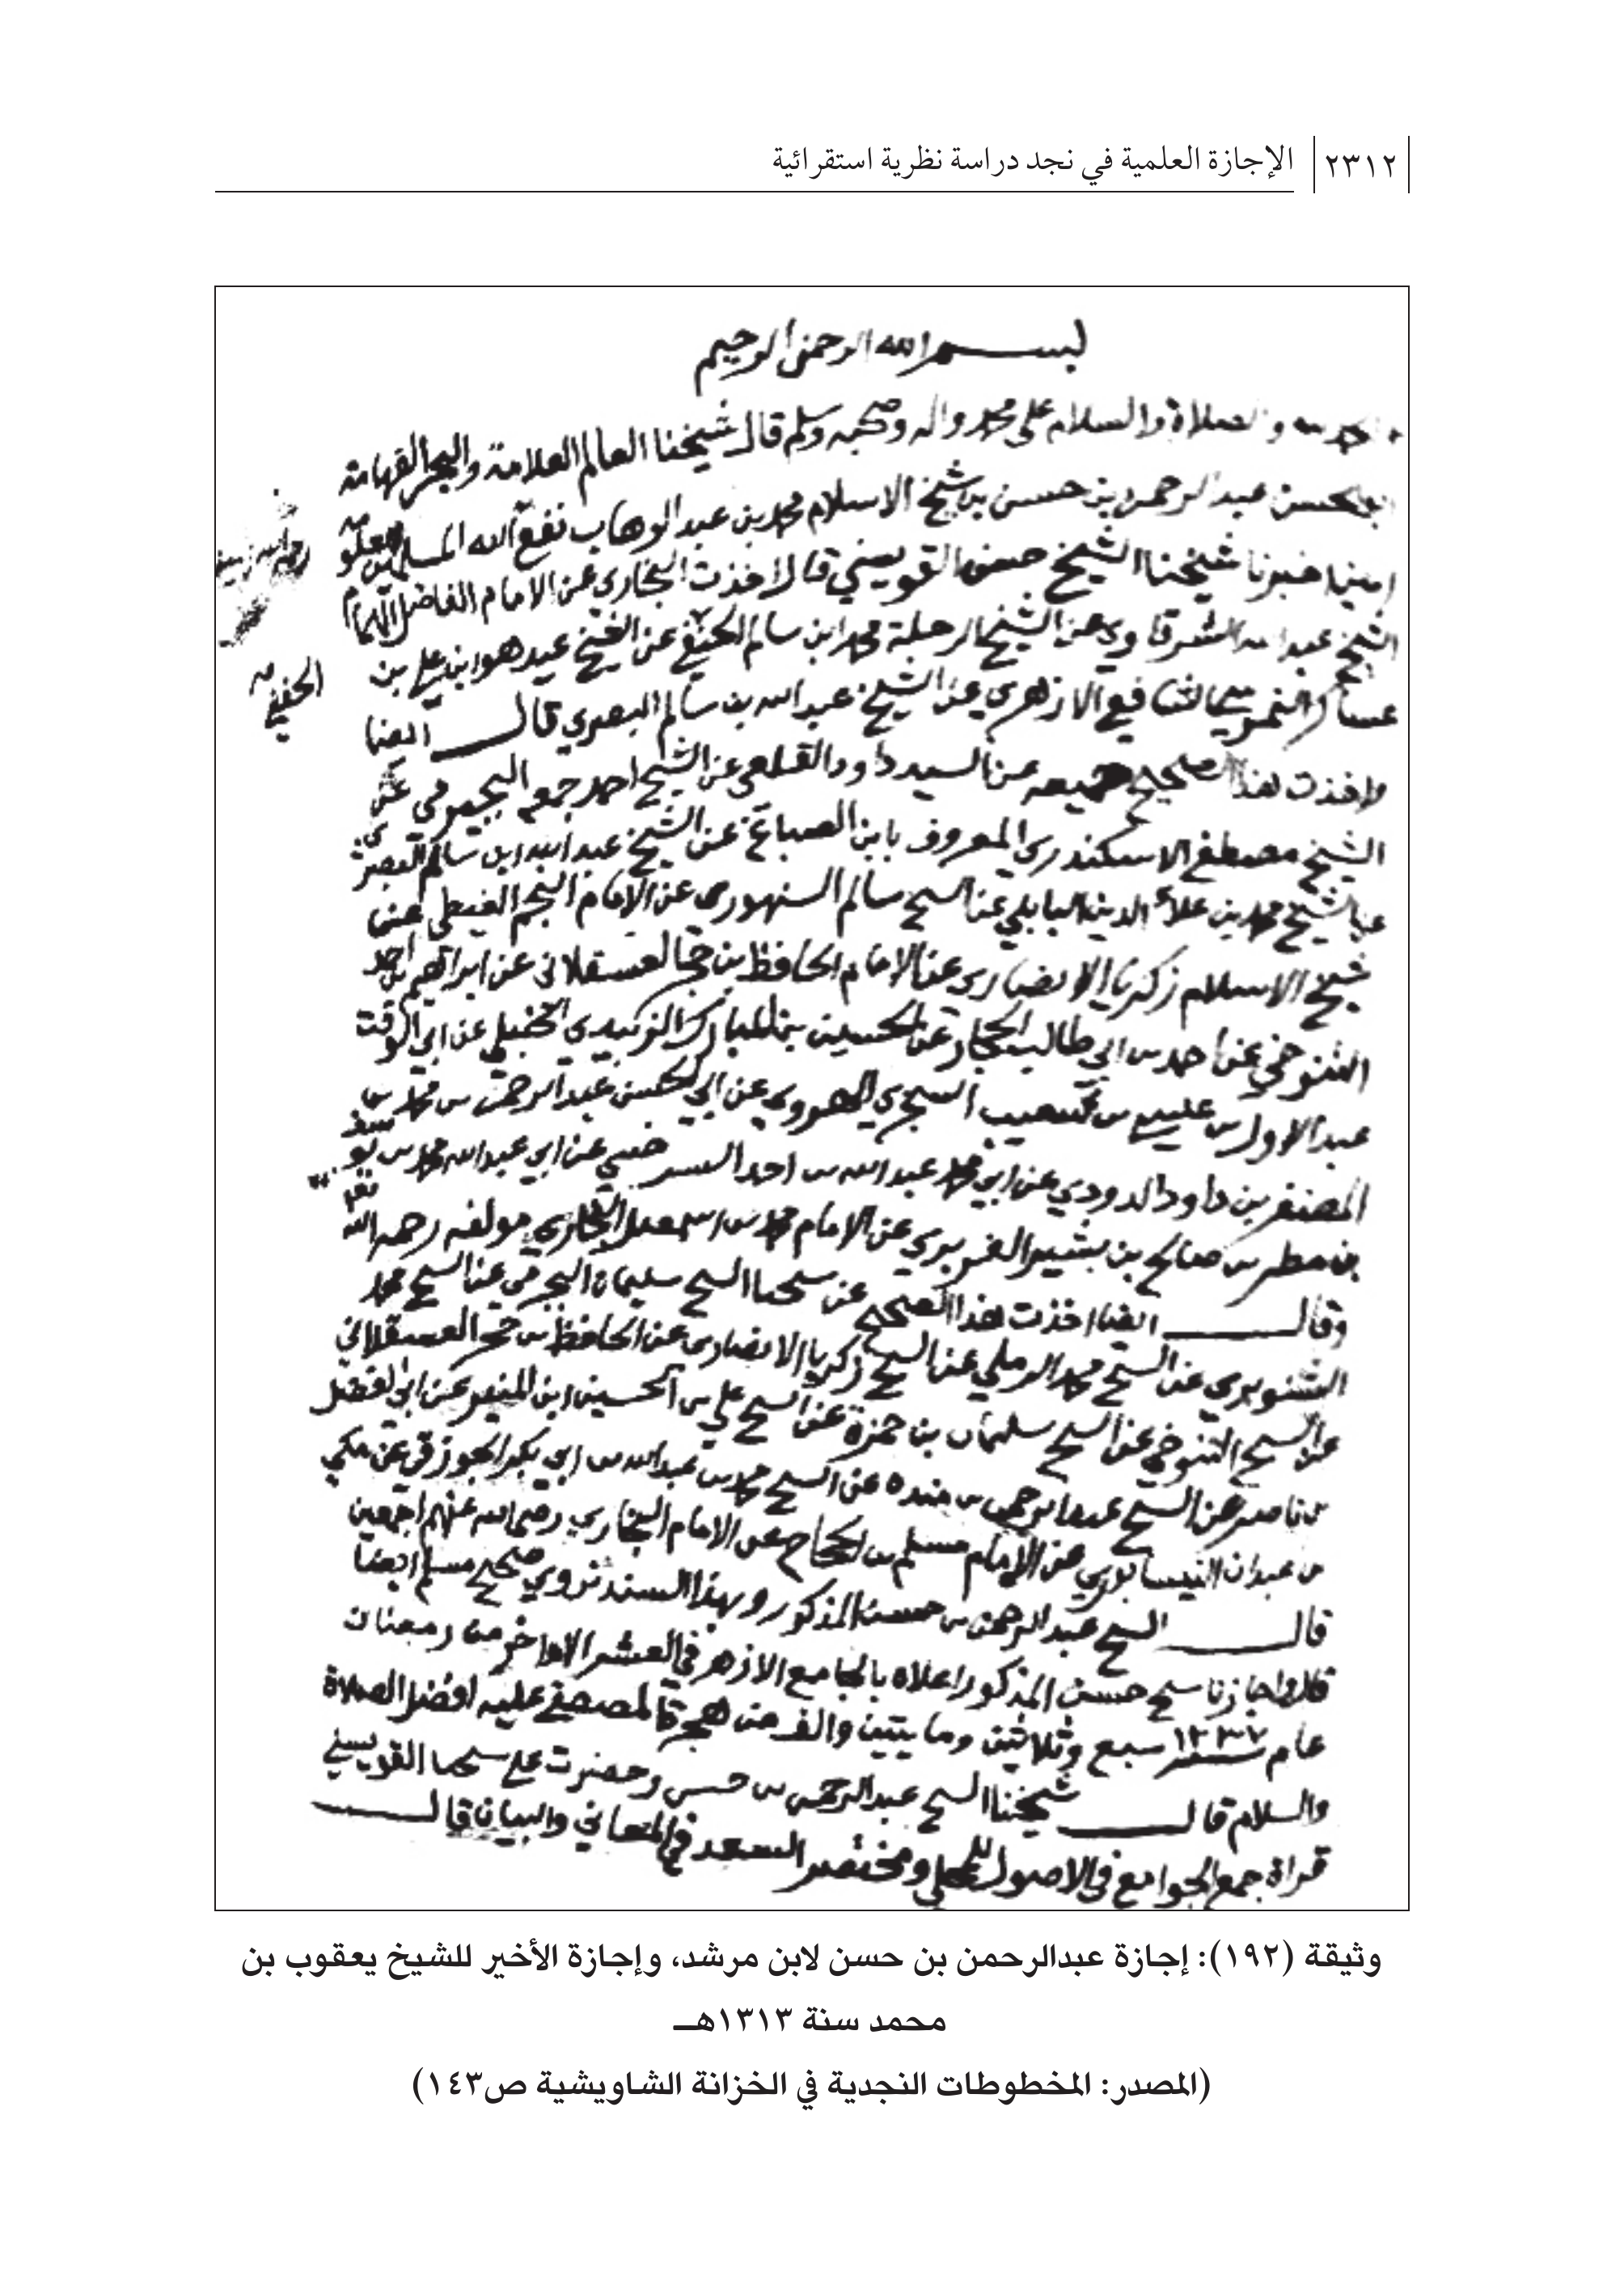 ٢٣١٢ الإجازة العلمية في نجد دراسة نظرية استقرائية
بسم الله الرحمن الرحيم
والصلاة والسلام على محمد واله وصحبه وسلم قال شيخنا العالم العلامة والبحر الفهامة
عبد الرحمن بن حسن بن شيخ الاسلام محمد بن عبد الوهاب نفع الله المسلمين بعلومه
امين اخبرنا شيخنا الشيخ حسن القويسني قال اخذت البخاري عن الامام الفاضل الهمام
الشيخ عبد الله الشرقاوي عن الشيخ الرحلة محمد ابن سالم الحنفي عن الشيخ عيد هو ابن علي بن
الحفني
عساكر النمرسي الشافعي الازهري عن الشيخ عبد الله بن سالم البصري قال ايضا
اخذت هذا الصحيح جميعه عن السيد داود القلعي عن الشيخ احمد جمعه البجيرمي عن
الشيخ مصطفى الاسكندري المعروف بابن الصباغ عن الشيخ عبد الله ابن سالم البصري
عن الشيخ محمد بن علاء الدين البابلي عن الشيخ سالم السنهوري عن الامام النجم الغيطي عن
شيخ الاسلام زكريا الانصاري عن الامام الحافظ بن حجر العسقلاني عن ابراهيم بن احمد
التنوخي عن احمد بن ابي طالب الحجار عن الحسين بن المبارك الزبيدي الحنبلي عن ابي الوقت
عبد الاول بن عيسى بن شعيب السجزي الهروي عن ابي الحسن عبد الرحمن بن محمد بن
المظفر بن داود الداودي عن ابي محمد عبد الله بن احمد السرخسي عن ابي عبد الله محمد بن يوسف
بن مطر بن صالح بن بشير الفربري عن الامام محمد بن اسمعيل البخاري مولفه رحمه الله
وقال ايضا اخذت هذا الصحيح عن شيخنا الشيخ سليمان البجيرمي عن الشيخ محمد
الشنوبري عن الشيخ محمد الرملي عن الشيخ زكريا الانصاري عن الحافظ بن حجر العسقلاني
عن الشيخ التنوخي عن الشيخ سليمان بن حمزة عن الشيخ علي بن الحسين ابن المنير عن ابي الفضل
بن ناصر عن الشيخ عبد الرحمن بن منده عن الشيخ محمد بن عبد الله بن ابي بكر الجوزقي عن مكي
بن عبدان النيسابوري عن الامام مسلم بن الحجاج عن الامام البخاري رضي الله عنهم اجمعين
قال الشيخ عبد الرحمن بن حسن المذكور وبهذا السند نروي صحيح مسلم ايضا
قال واجازنا شيخ حسن المذكور اعلاه بالجامع الازهر في العشر الاواخر من رمضان
عام ١٢٣٧ سبع وثلاثين ومايتين والف من هجرة المصطفى عليه افضل الصلاة
والسلام قال شيخنا الشيخ عبد الرحمن بن حسن وحضرت على شيخنا القويسني
قراة جمع الجوامع في الاصول للمحلي ومختصر السعد في المعاني والبيان قال
وثيقة (١٩٢): إجازة عبدالرحمن بن حسن لابن مرشد، وإجازة الأخير للشيخ يعقوب بن
محمد سنة ١٣١٣هـ
(المصدر: المخطوطات النجدية في الخزانة الشاويشية ص١٤٣)